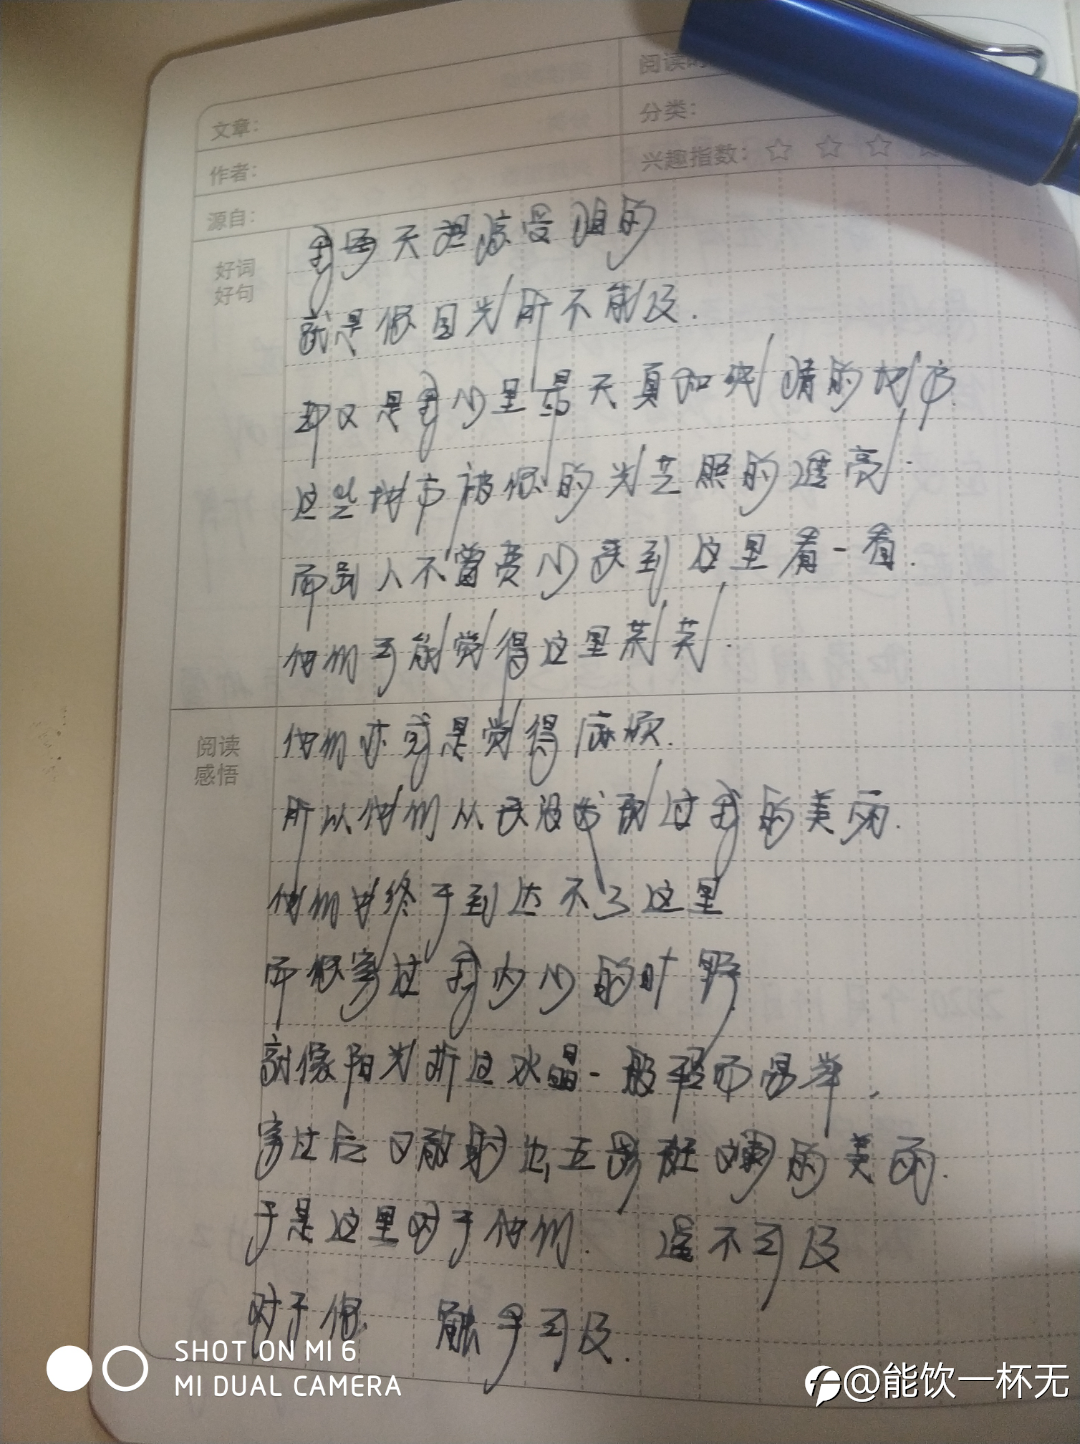 阅读时
文章:
分类:
作者:
兴趣指数: ☆ ☆ ☆ ☆
源自:
好词
好句
我每天理感受阻的
就是你目光所不能及.
却又是我心里最天真和纯情的地方
这些地方被你的光芒照的透亮.
而别人不曾费心来到这里看一看.
他们可能觉得这里荒芜.
阅读
感悟
他们亦或是觉得麻烦.
所以他们从未没发现过我的美丽.
他们也终于到达不了这里
而你穿过我内心的旷野
就像阳光折过水晶一般轻而易举,
穿过后又散射出五彩斑斓的美丽.
于是这里对于他们. 遥不可及
对于你 触手可及.
SHOT ON MI 6
MI DUAL CAMERA
@能饮一杯无